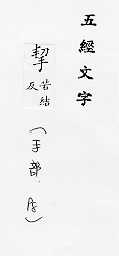 五經文字
挈
苦結
反
(手部.